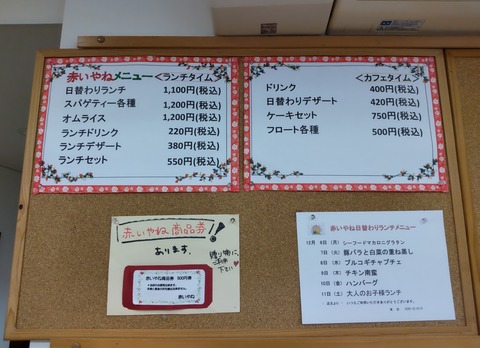 赤いやねメニュー<ランチタイム>
日替わりランチ 1,100円(税込)
スパゲティー各種 1,200円(税込)
オムライス 1,200円(税込)
ランチドリンク 220円(税込)
ランチデザート 380円(税込)
ランチセット 550円(税込)
<カフェタイム>
ドリンク 400円(税込)
日替わりデザート 420円(税込)
ケーキセット 750円(税込)
フロート各種 500円(税込)
赤いやね商品券!!
あります。
贈り物に
ご利用
下さい
赤いやね商品券 500円券
赤いやね
赤いやね日替わりランチメニュー
12月 6日(月) シーフードマカロニグラタン
7日(火) 豚バラと白菜の重ね蒸し
8日(水) プルコギチャプチェ
9日(木) チキン南蛮
10日(金) ハンバーグ
11日(土) 大人のお子様ランチ